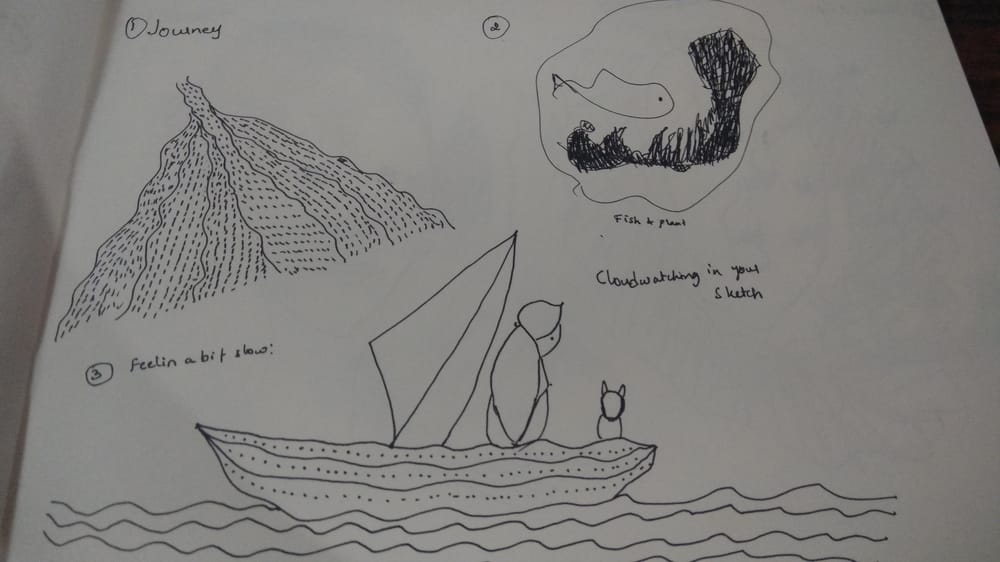 ① Journey
②
Fish & plant
Cloudwatching in your
Sketch
③ Feelin a bit slow: